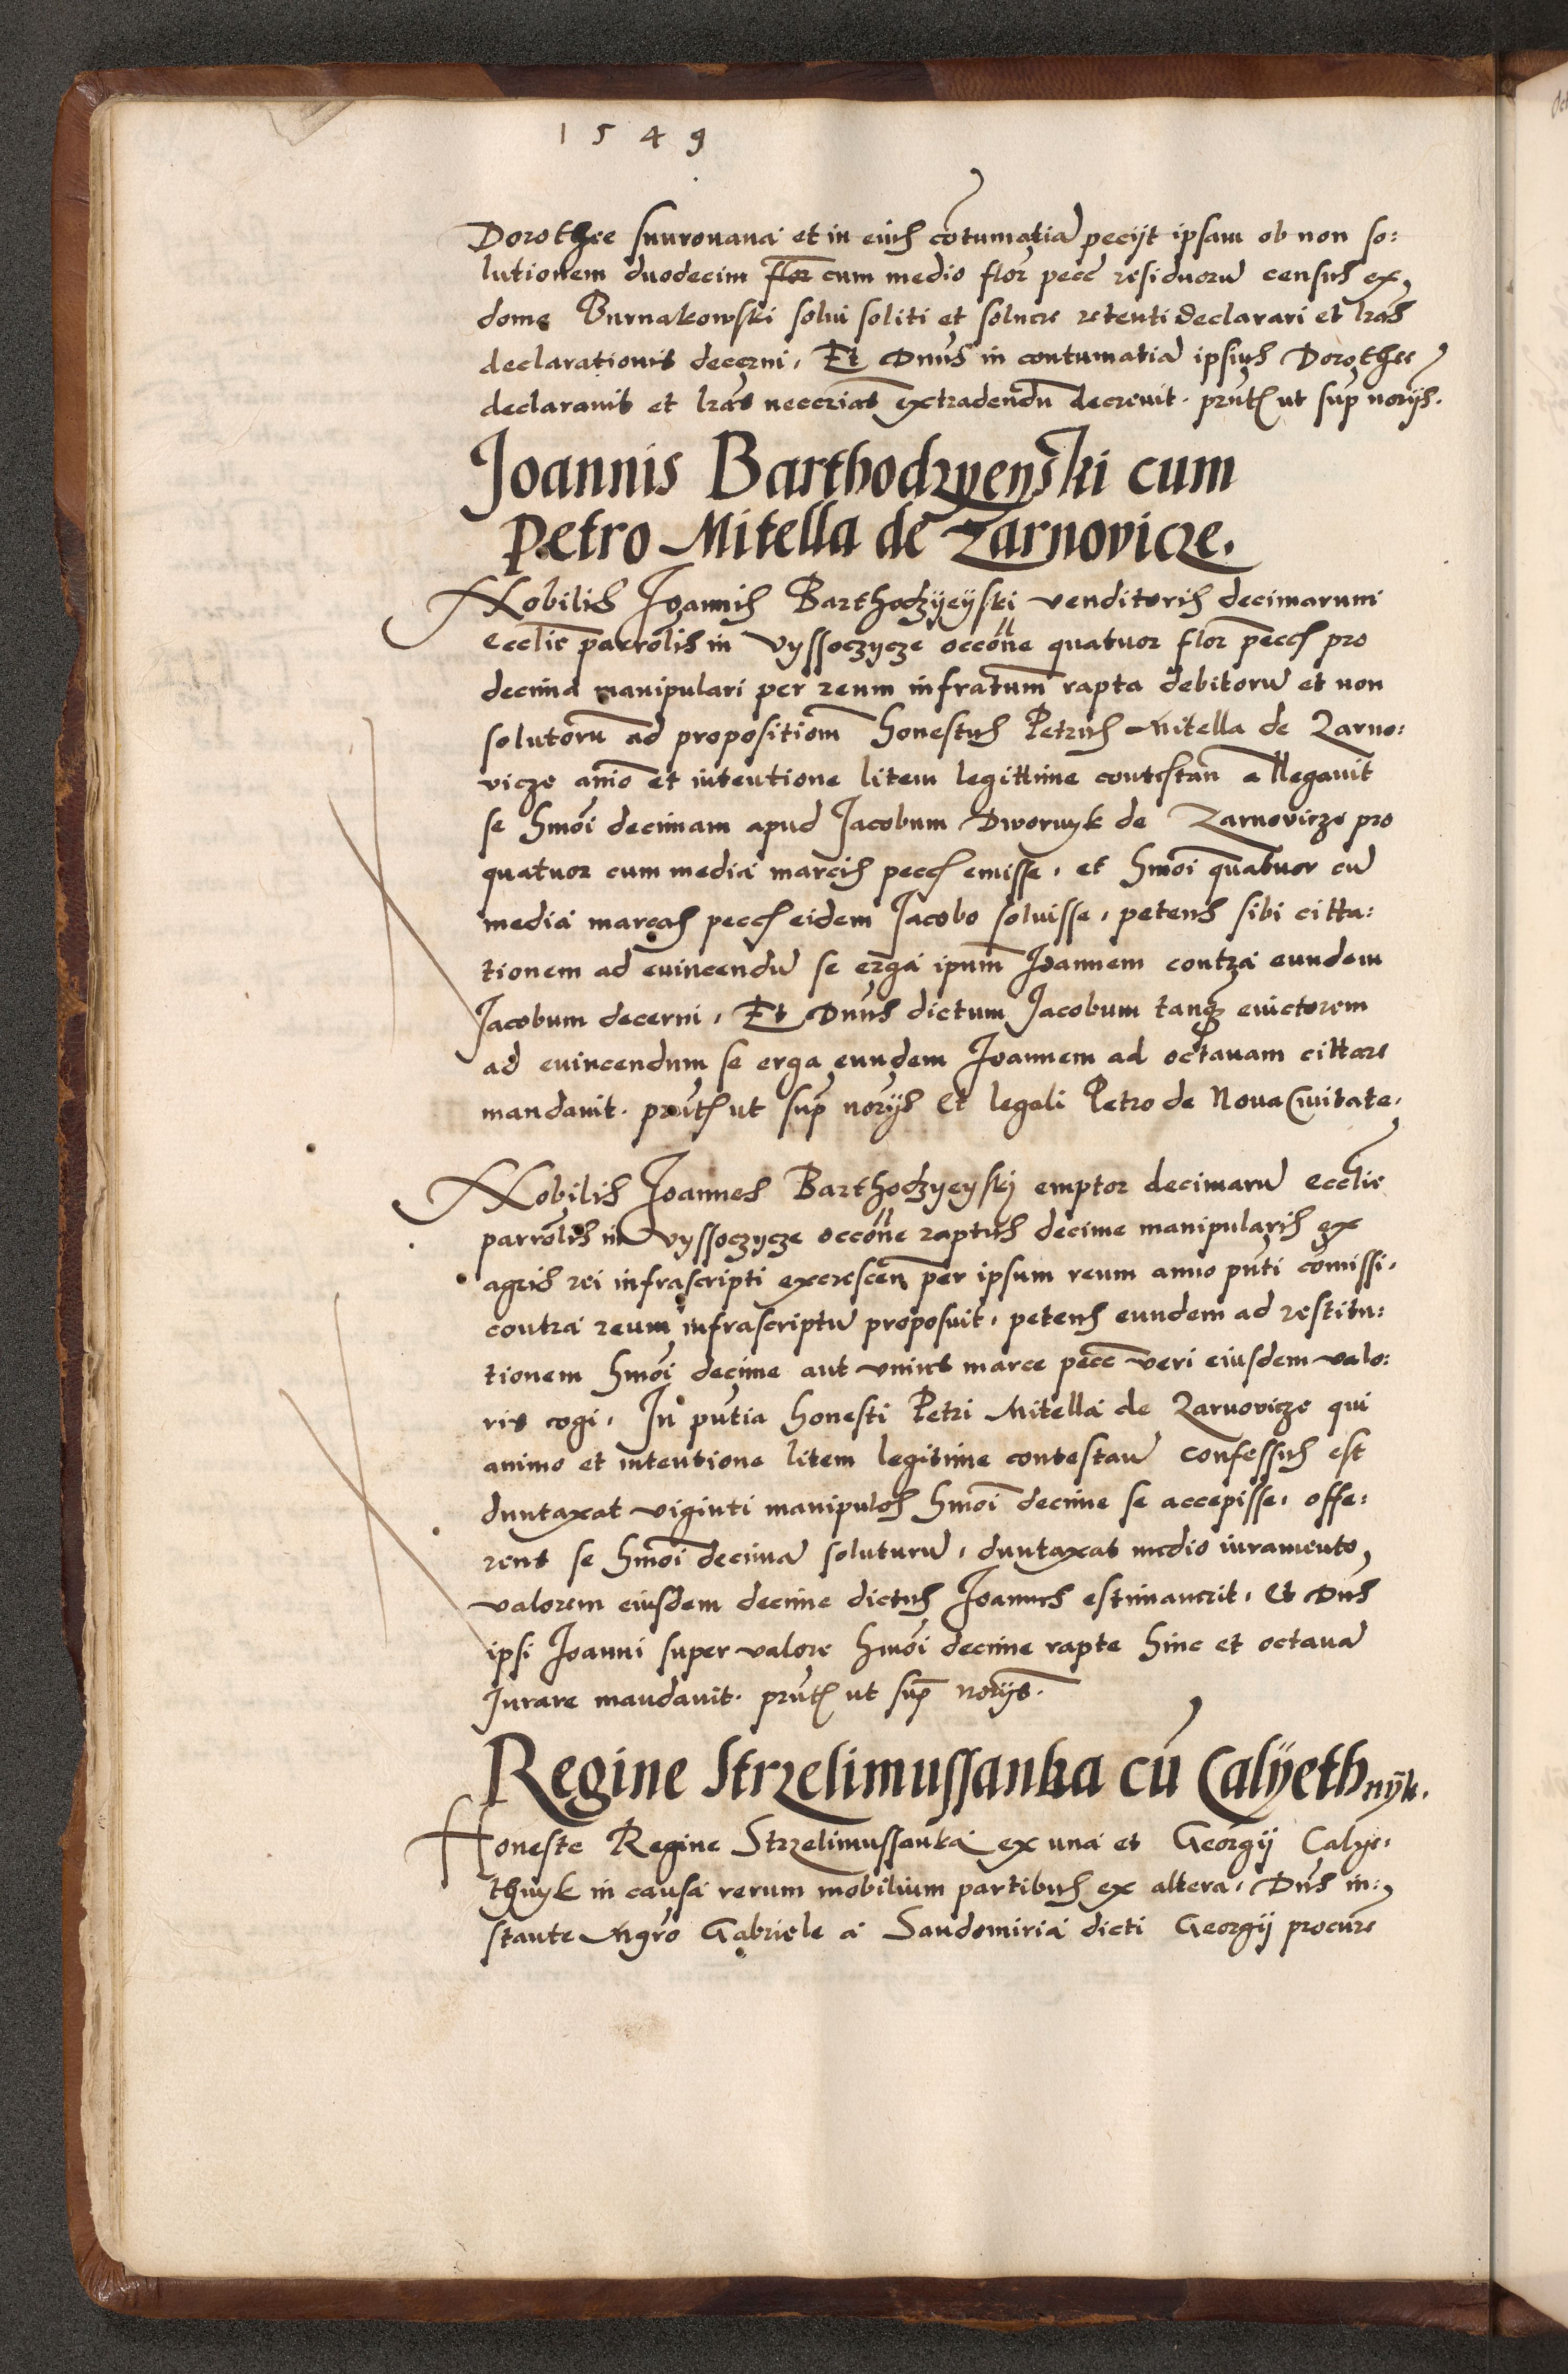 1549
Dorothee suurouana et in eius cōtumatiā pecijt ipsam ob non so:
lutionem duodecim flor cum medio flor pecc residuorū census ex
domo Burnakowski solui soliti et soluere retenti declarari et lrās
declarationis decerni, Et Dnūs in contumatiā ipsius Dorothee
declarauit et lrās neccrias extradendū decreuit. prntibȝ ut sup norijs.
Joannis Barthodzyeyski cum
Petro Mitella de Zarnovicze.
Nobilis Joannis Barthodzyeyski venditoris decimarum
ecclie parrolis in Vyssoczycze occōne quatuor flor pecc pro
decima manipulari per reum infratum rapta debitorū et non
solutorū ad propositiom honestus Petrus Mitella de Zarno:
vicze anīo et intentione litem legittime contestan allegauit
se hmōi decimam apud Jacobum Dwornyk de Zarnovicze pro
quatuor cum media marcis pecc emisse, et hmōi quatuor cū
media marcas pecc eidem Jacobo soluisse, petens sibi citta:
tionem ad euincendū se erga ipūm Joannem contra eundem
Jacobum decerni, Et Dnūs dictum Jacobum tanq euictorem
ad euincendum se erga eundem Joannem ad octauam cittare
mandauit. prntibȝ ut sup norijs Et legali Petro de Noua Ciuitate.
Nobilis Joannes Barthodzyeyskj emptor decimarū ecclie
parrolis in Vyssoczycze occōne raptus decime manipularis ex
agris rei infrascripti excrescen per ipsum reum anno pnti cōmissi,
contra reum infrascriptū proposuit, petens eundem ad restitu:
tionem hmōi decime aut vnius marce pecc veri eiusdem valo:
ris cogi, In pntia honesti Petri Mitella de Zarnovicze qui
animo et intentione litem legitime contestan confessus est
duntaxat viginti manipulos hmōi decime se accepisse, offe:
rens se hmōi decimā soluturū, duntaxat medio iuramento
valorem eiusdem decime dictus Joannes estimauerit, Et Dns
ipsi Joanni super valore hmōi decime rapte hinc et octauā
Jurare mandauit. prntibȝ ut sup norijs.
Regine Strzelimussanka cū Calyethnyk.
Honeste Regine Strzelimussanka ex una et Georgij Calye:
thnyk in causa rerum mobilium partibus ex altera, Dns in:
stante Mgro Gabriele a Sandomiria dicti Georgij procure